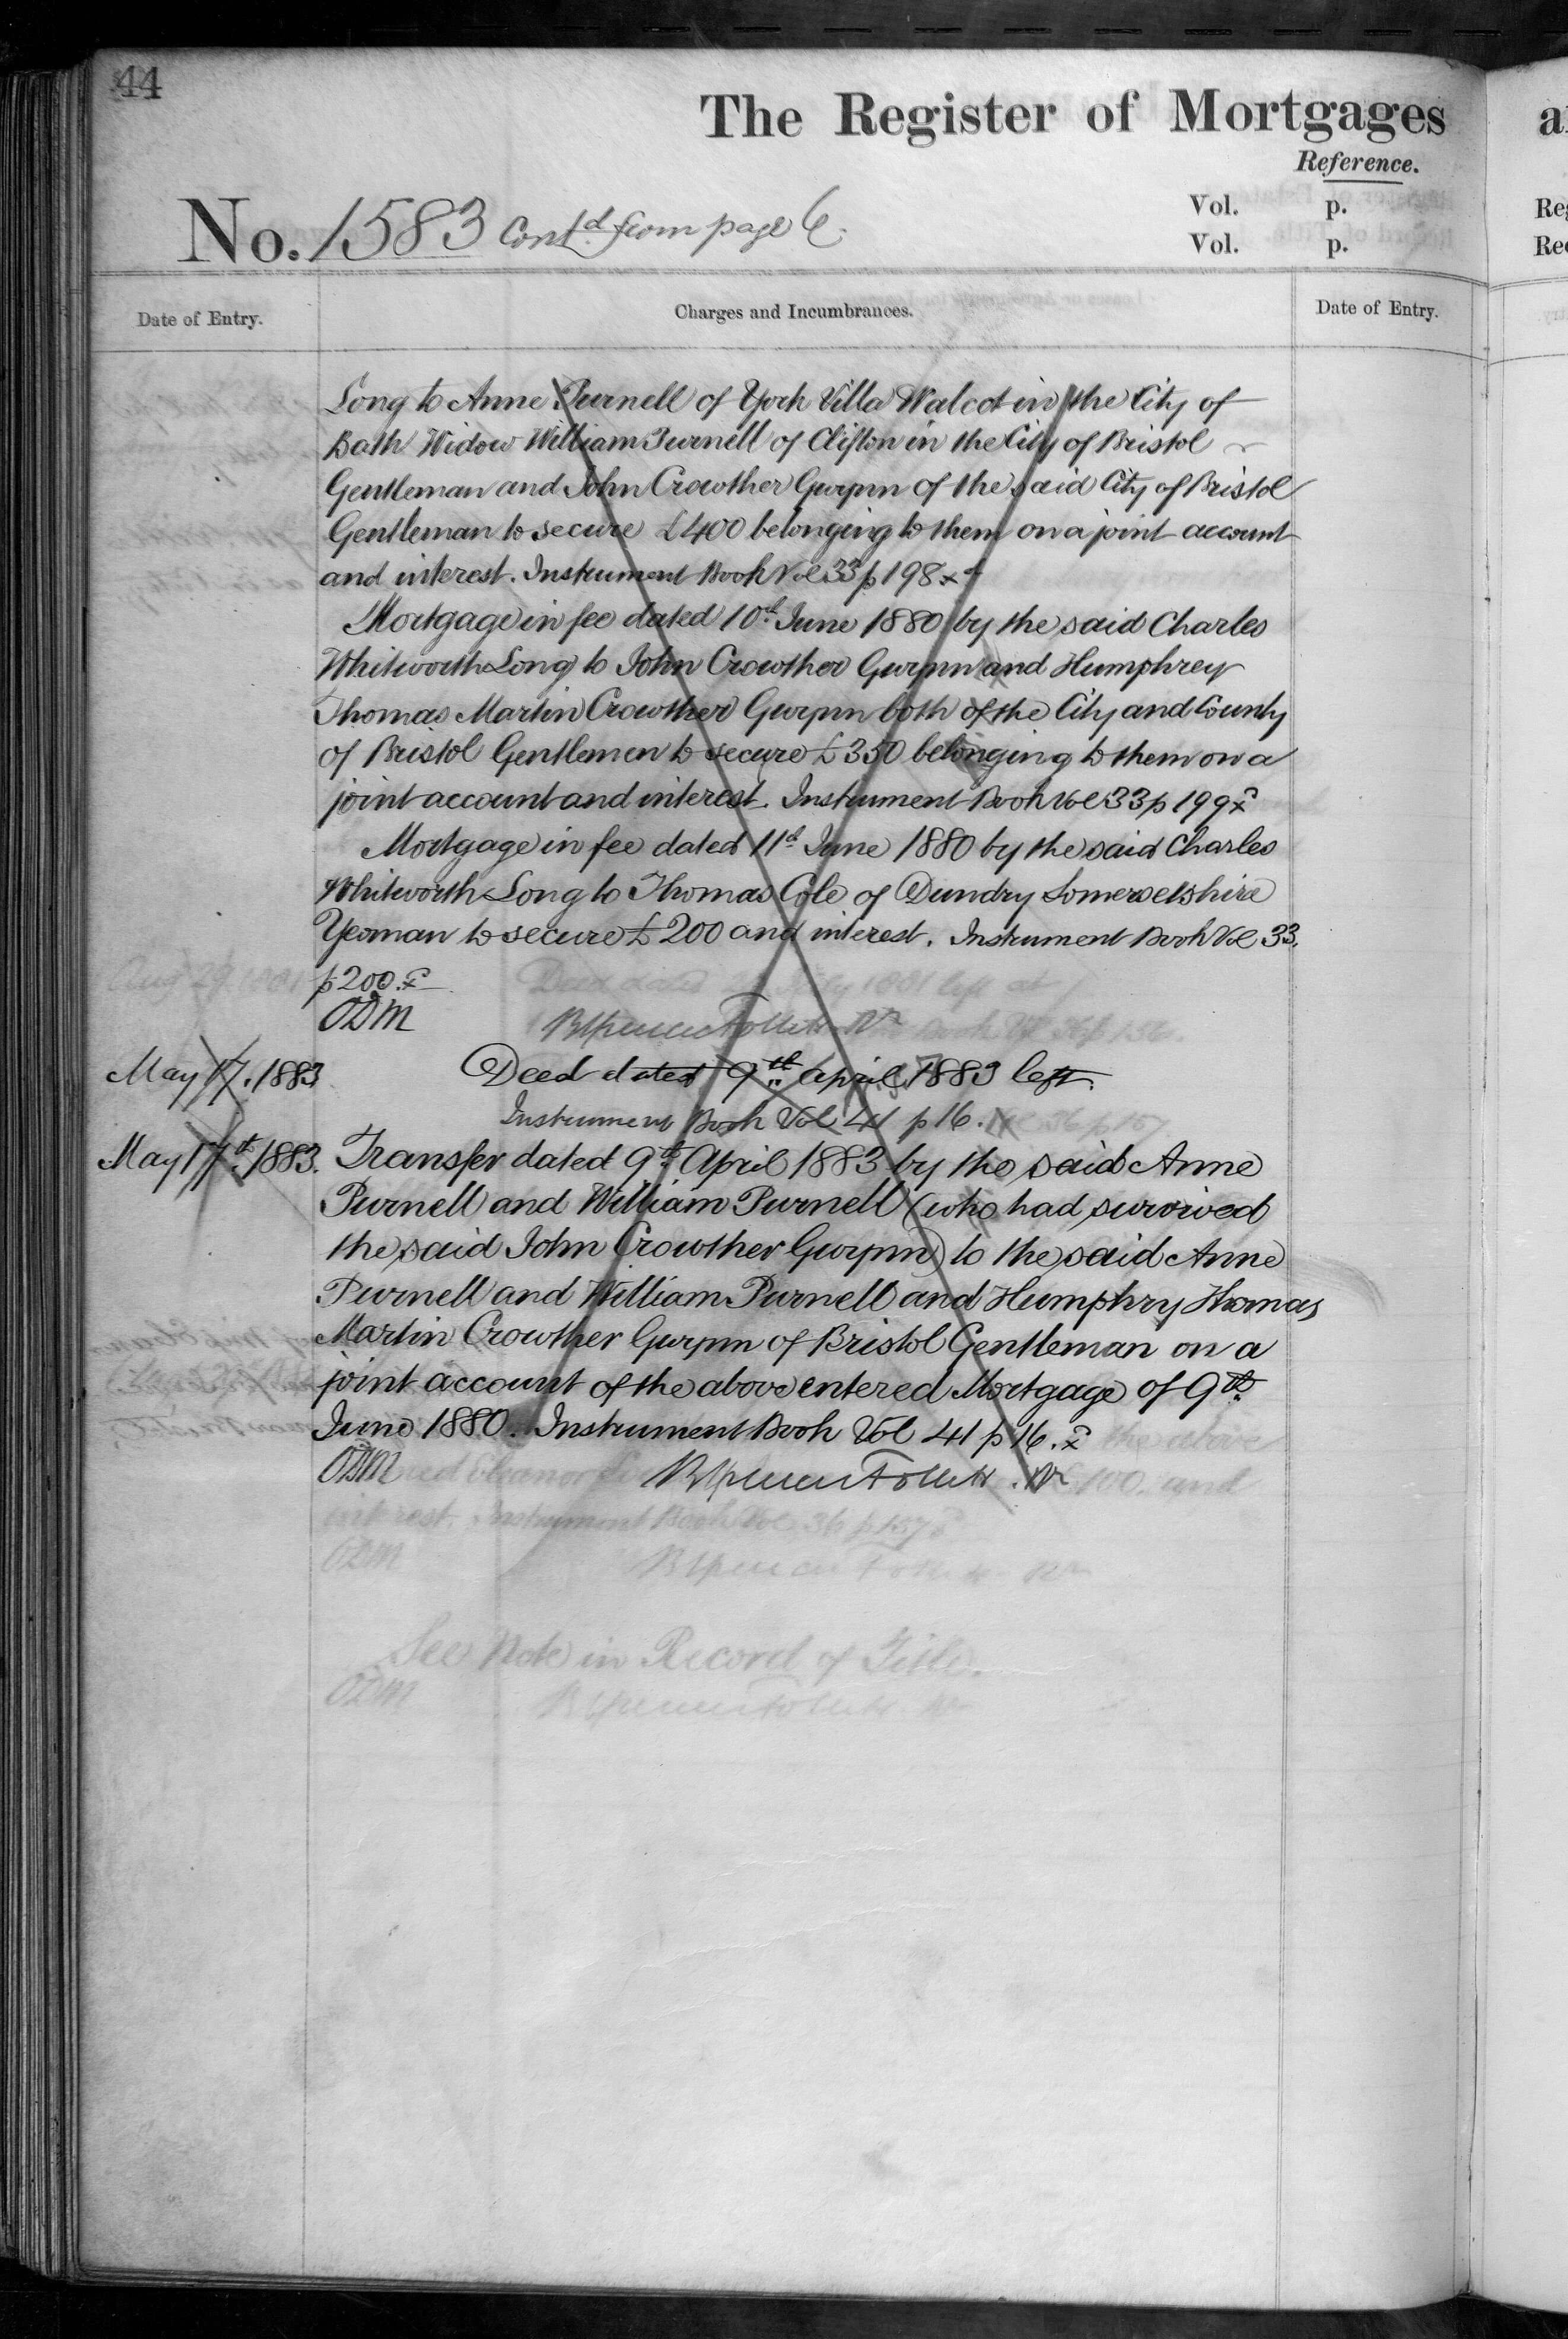 44
The Register of Mortgages
Reference.
No. 1583 Contd from page 6.
Vol. p.
Vol. p.
Date of Entry.
Charges and Incumbrances.
Date of Entry.
Long to Anne Purnell of York Villa Walcot in the City of
Bath Widow William Purnell of Clifton in the City of Bristol
Gentleman and John Crowther Gwynn of the said City of Bristol
Gentleman to secure £400 belonging to them on a joint account
and interest. Instrument Book Vol 33 p 198
Mortgage in fee dated 10th June 1880 by the said Charles
Whitworth Long to John Crowther Gwynn and Humphrey
Thomas Martin Crowther Gwynn both of the City and County
of Bristol Gentlemen to secure £350 belonging to them on a
joint account and interest. Instrument Book Vol 33 p 199
Mortgage in fee dated 11th June 1880 by the said Charles
Whitworth Long to Thomas Cole of Dundry Somersetshire
Yeoman to secure £200 and interest. Instrument Book Vol 33.
p 200.
ODM
May 17. 1883 Deed dated 9th April 1883 left.
Instrument Book Vol 41 p 16.
May 17th. 1883. Transfer dated 9th April 1883 by the said Anne
Purnell and William Purnell (who had survived
the said John Crowther Gwynn) to the said Anne
Purnell and William Purnell and Humphry Thomas
Martin Crowther Gwynn of Bristol Gentleman on a
joint account of the above entered Mortgage of 9th
June 1880. Instrument Book Vol 41 p 16.
ODM
interest. Instrument Book Vol 36 p 157
ODM
See Note in Record of Title.
ODM